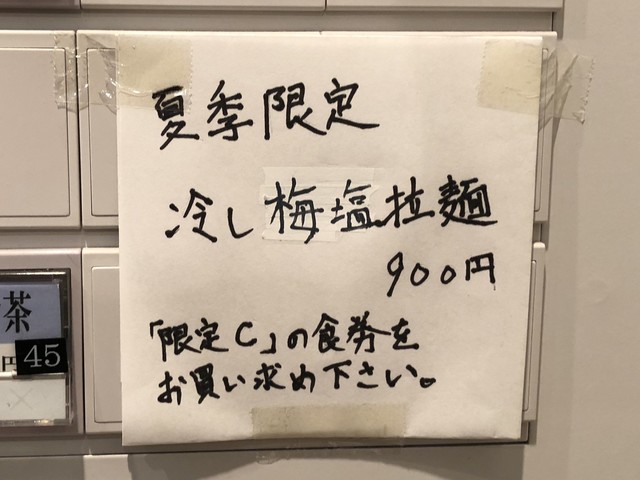 夏季限定
冷し梅塩拉麺
900円
「限定C」の食券を
お買い求め下さい。
茶
円
45